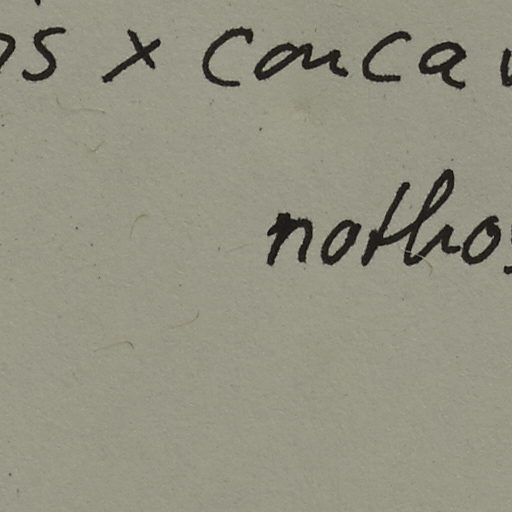 is x concav
nothos